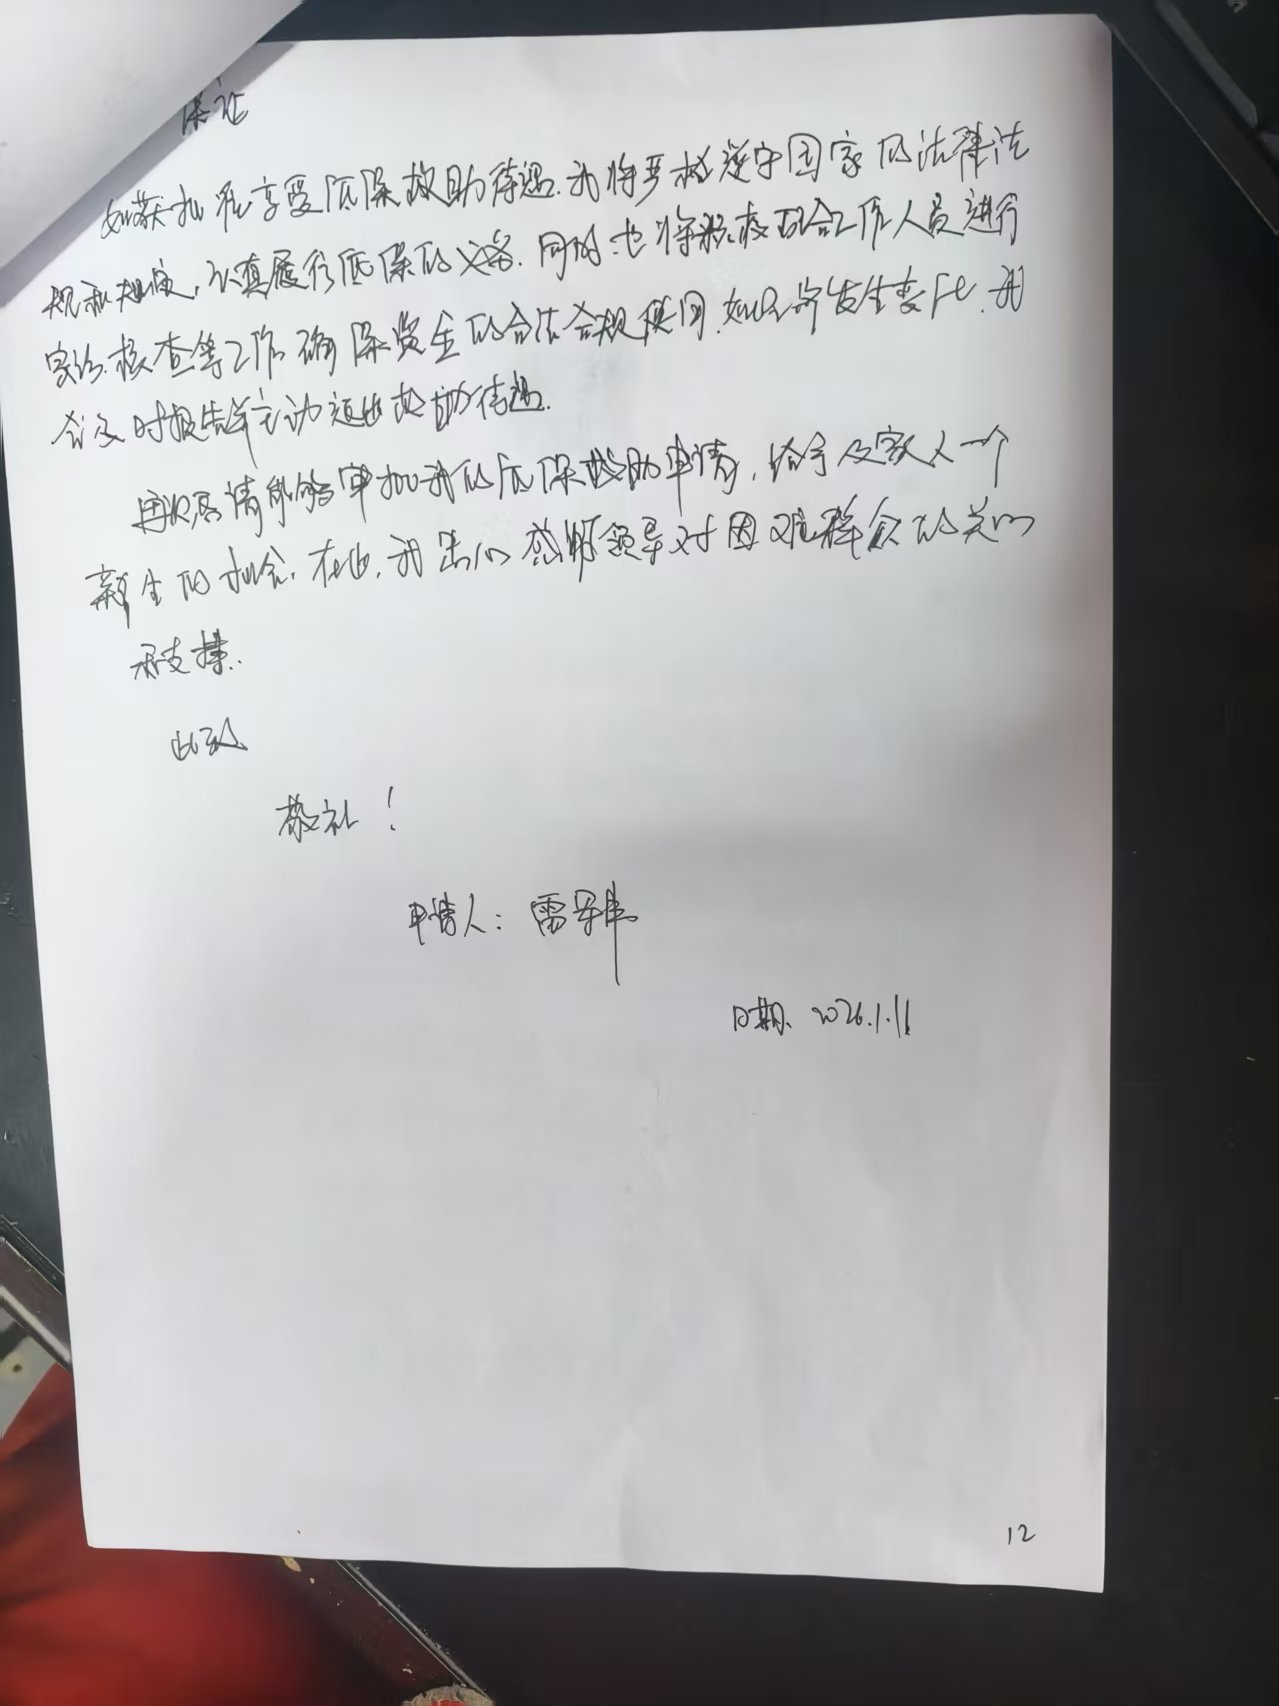 保证
如获批准享受低保救助待遇.我将严格遵守国家的法律法
规和规定,认真履行低保的义务.同时.也将积极配合工作人员进行
家访.核查等工作 确保资金的合法合规使用.如经济发生变化.我
会及时报告并主动退出救助待遇.
再次恳请能够审批我的低保救助申请,给予及家人一个
新生的机会.在此,我衷心感谢领导对困难群众的关心
和支持.
此致
敬礼!
申请人:雷
日期. 2026.1.11
12